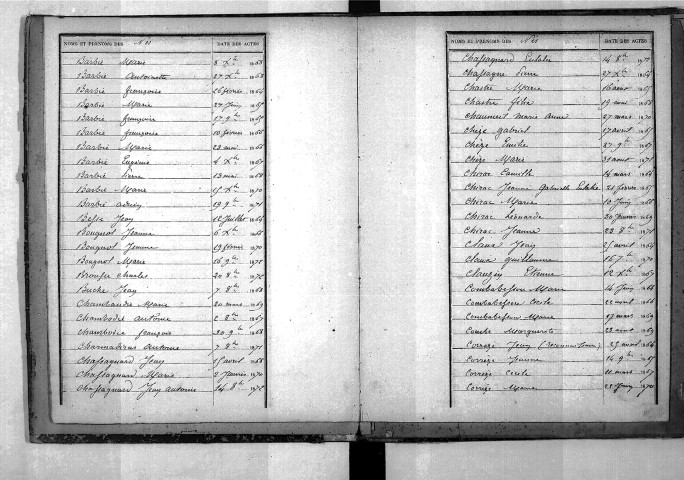 NOMS ET PRÉNOMS DES Nés DATE DES ACTES
Barbié Marie 8 Xbre 1868
Barbié Antoinette 27 Xbre 1868
Barbié françoise 26 février 1864
Barbié Marie 27 Juin 1865
Barbié françoise 17 9bre
Barbié françoise 10 février 1866
Barbié Marie 23 mai
Barbié Eugénie 4 Xbre 1867
Barbié Pierre 13 mai 1868
Barbié Marie 15 Xbre 1870
Barbié 19 9bre 1871
Besse Jean 12 Juillet 1864
Bouquot Jeanne 6 Xbre 1866
Bouquot Jeanne 19 février 1870
Bouquot Marie 26 9bre 1871
Charles 20 8bre 1872
Buche Jean 7 8bre 1868
Marie 20 mars 1869
Chambodie Antoine 2 8bre 1867
Chambodie françois 20 9bre 1868
Antoine 7 8bre 1871
Chassagnard Jean 25 avril 1868
Chassagnard Marie 2 Janvier 1870
Chassagnard Jean Antoine 24 8bre 1872
NOMS ET PRÉNOMS DES Nés DATE DES ACTES
Chassagnard Eulalie 14 8bre 1872
Chassagne 27 Xbre 1864
Chastre Marie 16 août 1865
Chastre félix 19 mai 1868
Chaumeil Marie Anne 27 mars 1870
Chèze gabriel 17 avril 1867
Chèze Emilie 27 9bre 1867
Chèze Marie 31 août 1871
Chirac Camille 14 mars 1864
Chirac Jeanne Gabrielle Eulalie 21 février 1867
Chirac Marie 10 Juin 1868
Chirac Léonarde 20 Janvier 1869
Chirac Jeanne 23 8bre 1871
Claux Jean 25 avril 1864
Claux guillaume 16 7bre 1870
Clauzin Etienne 12 Xbre 1867
Combabessou Marie 14 Juin 1864
Combabessou 22 avril 1866
Combabessou Marie 27 mars 1869
Couche Marguerite 23 août 1869
Corrèze Jean (reconnaissance) 25 avril 1864
Corrèze Jeanne 14 9bre 1865
Corrèze 11 mars 1867
Corrèze Marie 21 Juin 1870